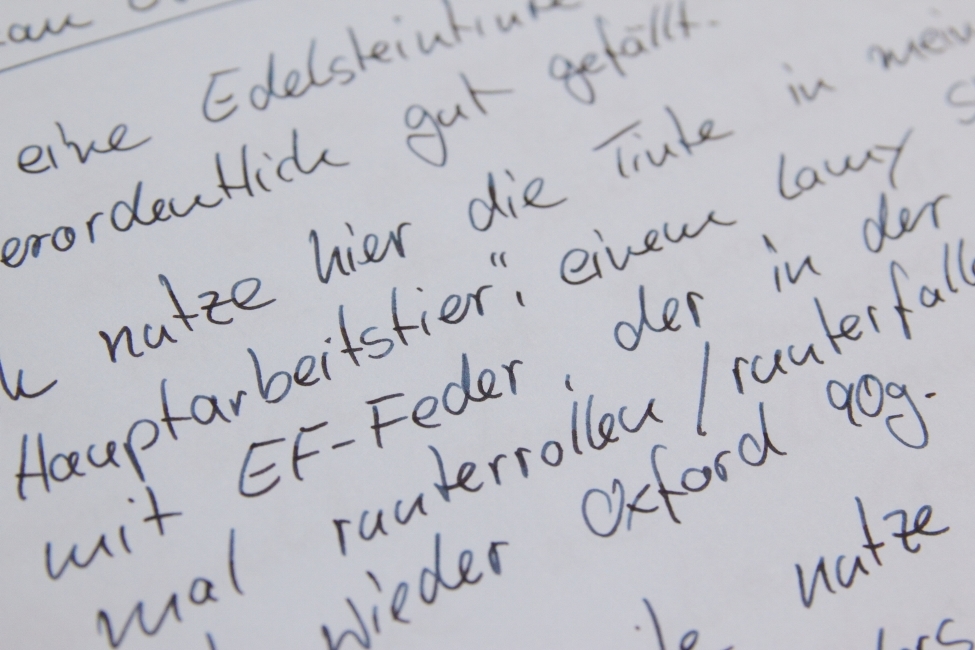 eine Edelsteintinte
erordentlich gut gefällt.
nutze hier die Tinte in mein
Hauptarbeitstier", einem Lamy S
mit EF-Feder, der in der
mal runterrollen/runterfalle
wieder Oxford 90g.
nutze